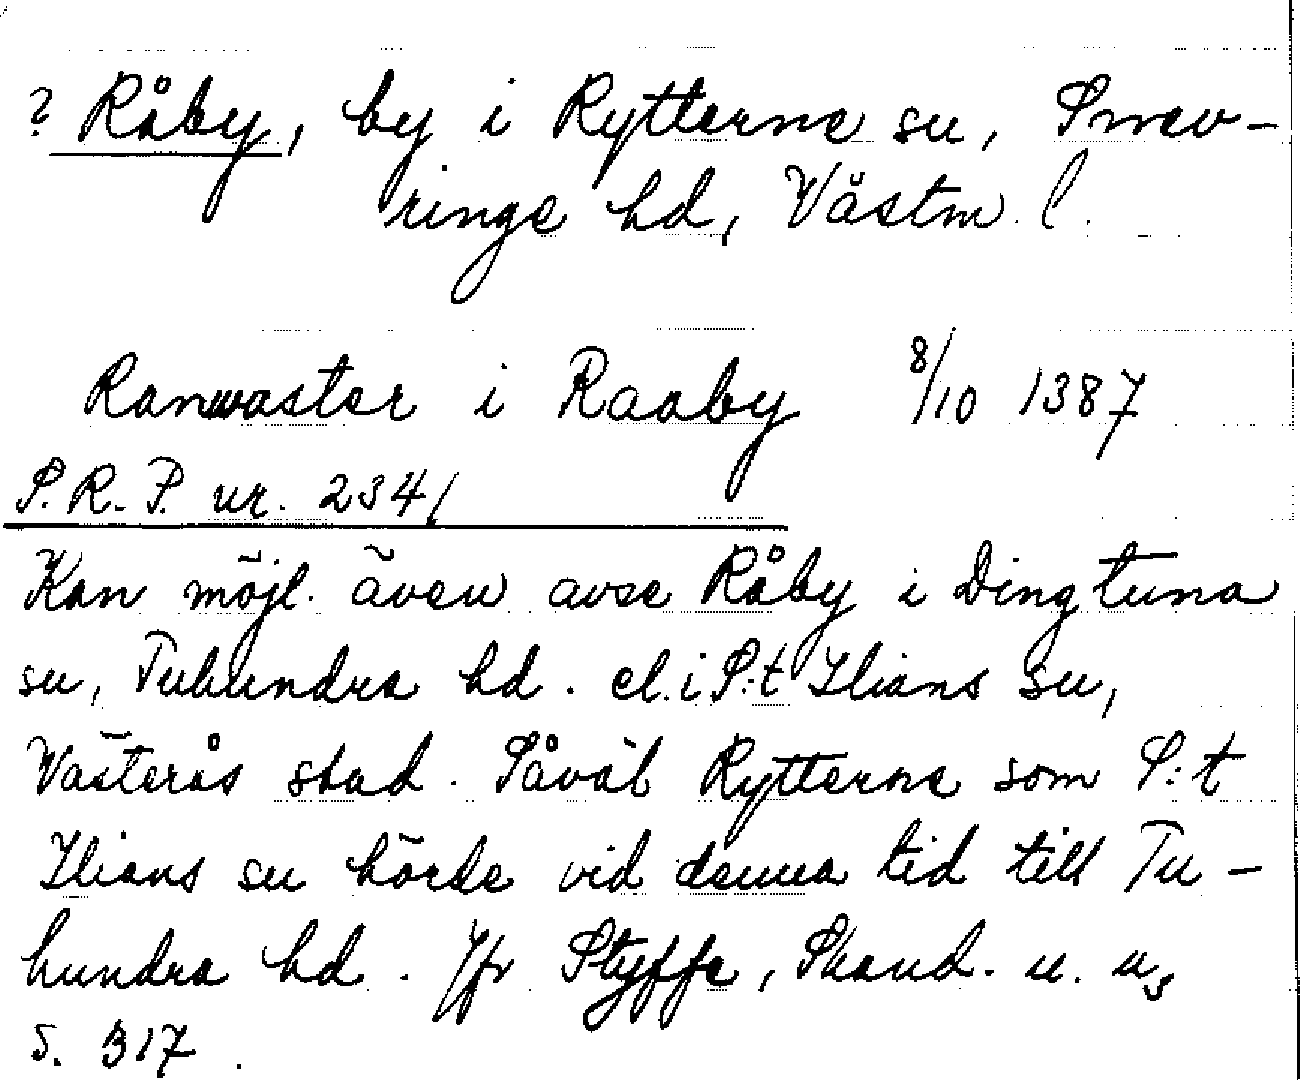 ? Råby, by i Rytterne sn, Snev-
ringe hd, Västm. l.
Ranwaster i Raaby 8/10 1387
S.R.P. nr. 2341
Kan möjl. även avse Råby i Dingtuna
sn, Tuhundra hd. el. i S:t Ilians sn,
Västerås stad. Såväl Rytterne som S:t
Ilians sn hörde vid denna tid till Tu-
hundra hd. Jfr Styffe, Skand. u. u,
s. 317.